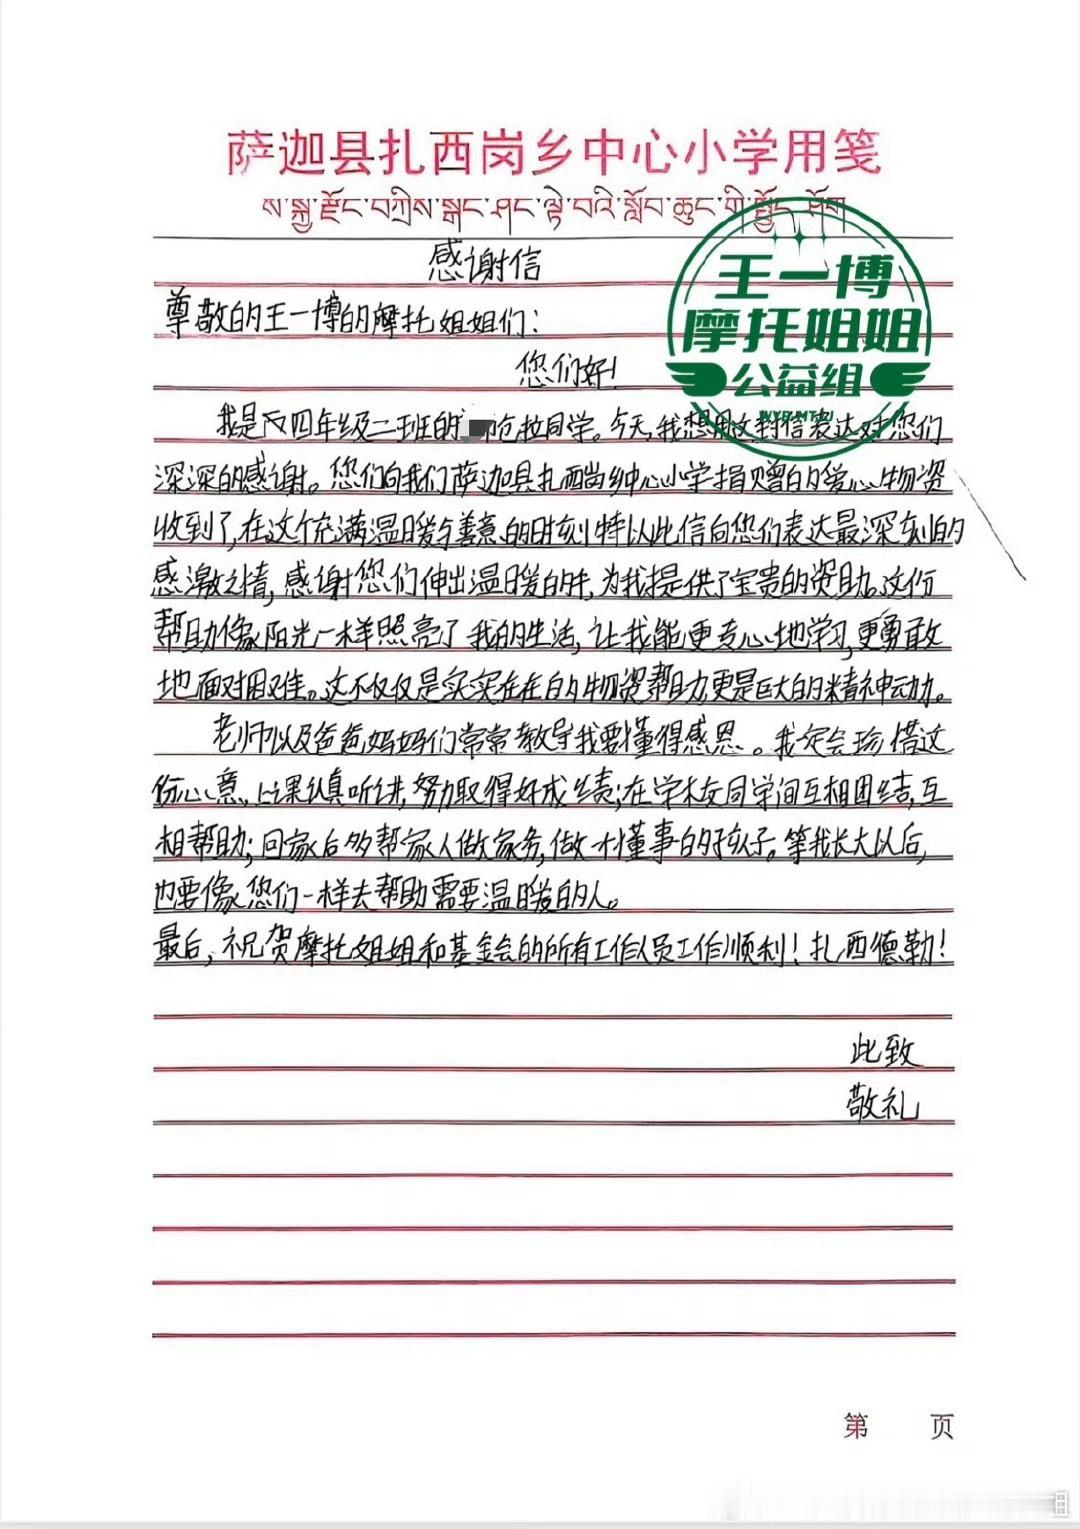 萨迦县扎西岗乡中心小学用笺
ས་སྐྱ་རྫོང་བཀྲིས་སྒང་ཤང་ལྟེ་བའི་སློབ་ཆུང་གི་སྤྱོད་ཤོག
王一博
摩托姐姐
公益组
WYB·MTJJ
感谢信
尊敬的王一博的摩托姐姐们：
您们好！
我是四年级二班的 拉同学。今天，我想用这封信表达对您们
深深的感谢。您们向我们萨迦县扎西岗乡中心小学捐赠的爱心物资
收到了，在这个充满温暖与善意的时刻特以此信向您们表达最深刻的
感激之情，感谢您们伸出温暖的手，为我提供了宝贵的资助。这份
帮助像阳光一样照亮了我的生活，让我能更专心地学习，更勇敢
地面对困难。这不仅仅是实实在在的物资帮助更是巨大的精神动力。
老师以及爸爸妈妈们常常教导我要懂得感恩。我定会珍惜这
份心意，上课认真听讲，努力取得好成绩；在学校同学间互相团结，互
相帮助；回家后多帮家人做家务，做个懂事的好孩子。等我长大以后，
也要像您们一样去帮助需要温暖的人。
最后，祝贺摩托姐姐和基金会的所有工作人员工作顺利！扎西德勒！
此致
敬礼
第 页